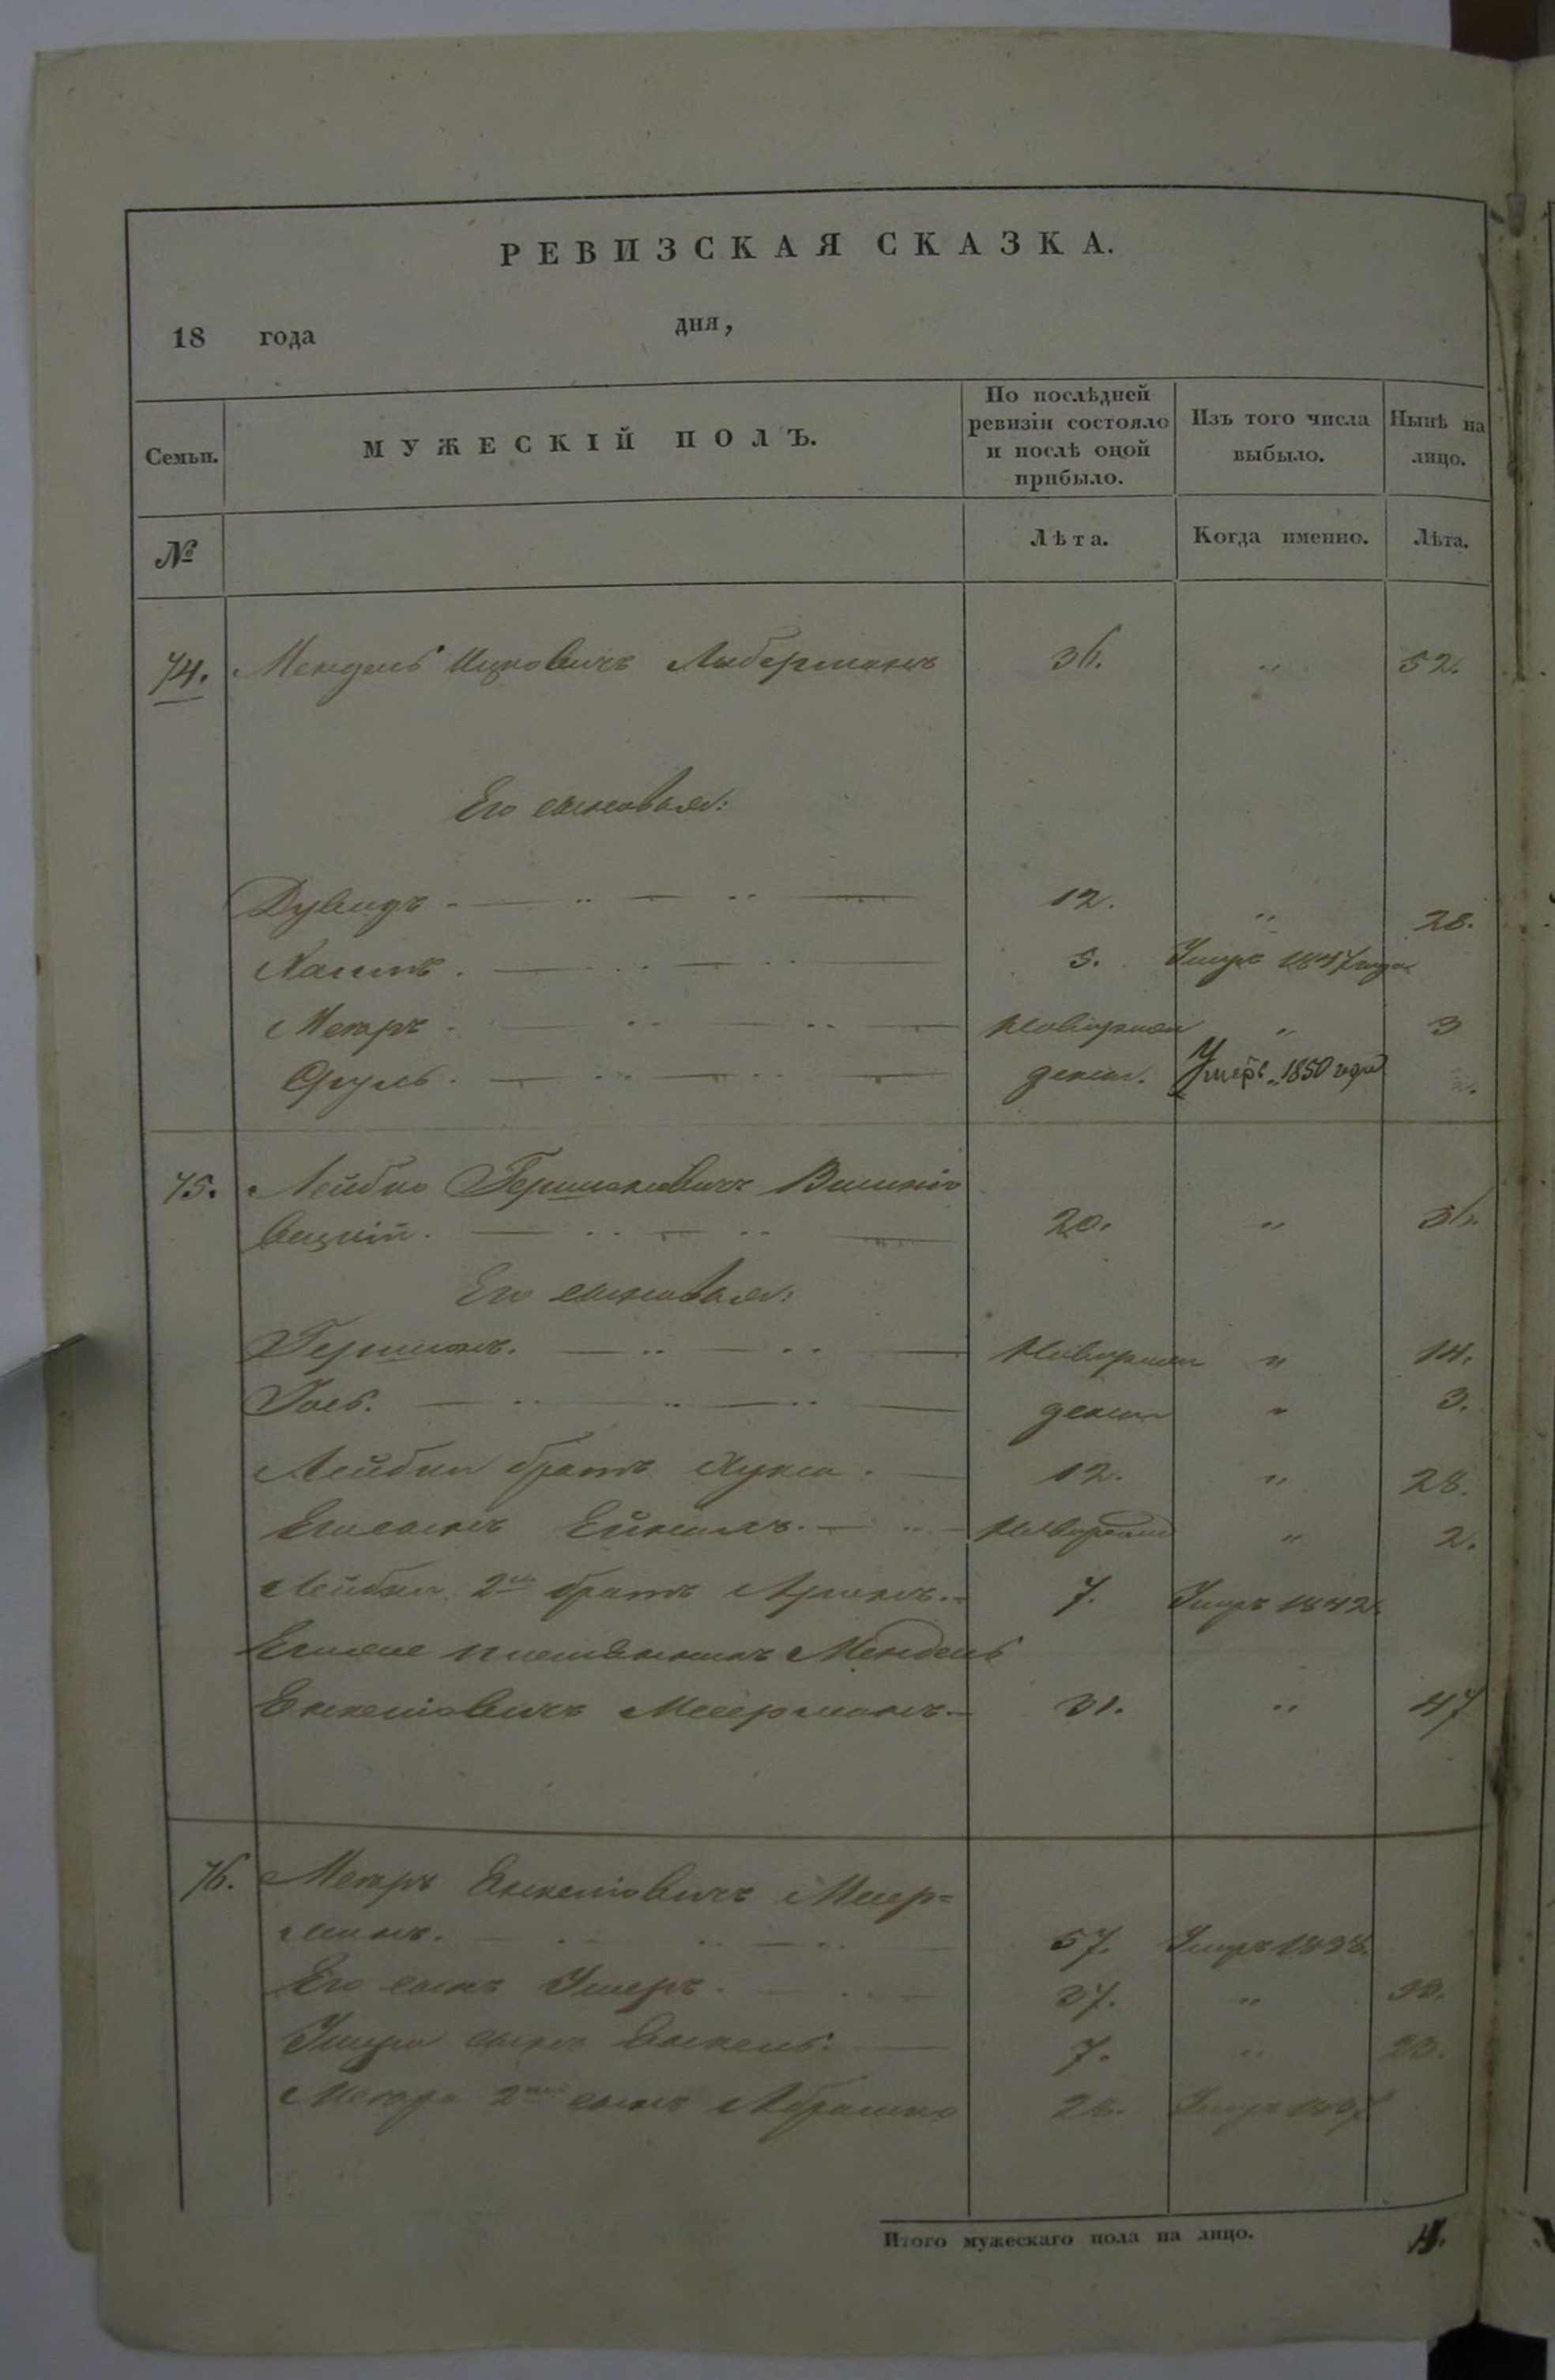 РЕВИЗСКАЯ СКАЗКА.
18 года дня,
Семьи. МУЖЕСКІЙ ПОЛЪ. По послѣдней ревизіи состояло и послѣ оной прибыло. Изъ того числа выбыло. Нынѣ на лицо.
№ Лѣта. Когда именно. Лѣта.
74. Мендель Ицковичъ Либерманъ 36. " 52.
Его сыновья:
Дувидъ 12. " 28.
5. Умеръ 1847 года
Мееръ новорожден " 3
Сруль. деній. Умеръ 1850 года
75. Лейбко Гершковичъ Вишне
вецкій. 20. " 36.
Его сыновья:
Гершонъ. новорожден " 14.
деній " 3.
Лейбки братъ 12. " 28.
Его сынъ новорожден " 2.
Лейбки 2й братъ Аронъ. 7. Умеръ 1842.
Его же племянникъ Мендель
Меерманъ. 31. " 47
76. Мееръ Меер=
манъ. 57. Умеръ
Его сынъ Ушеръ. 37. " 53.
Ушера сынъ 7. " 23.
Меера 2й сынъ Абрашко Умеръ
Итого мужескаго пола на лицо.